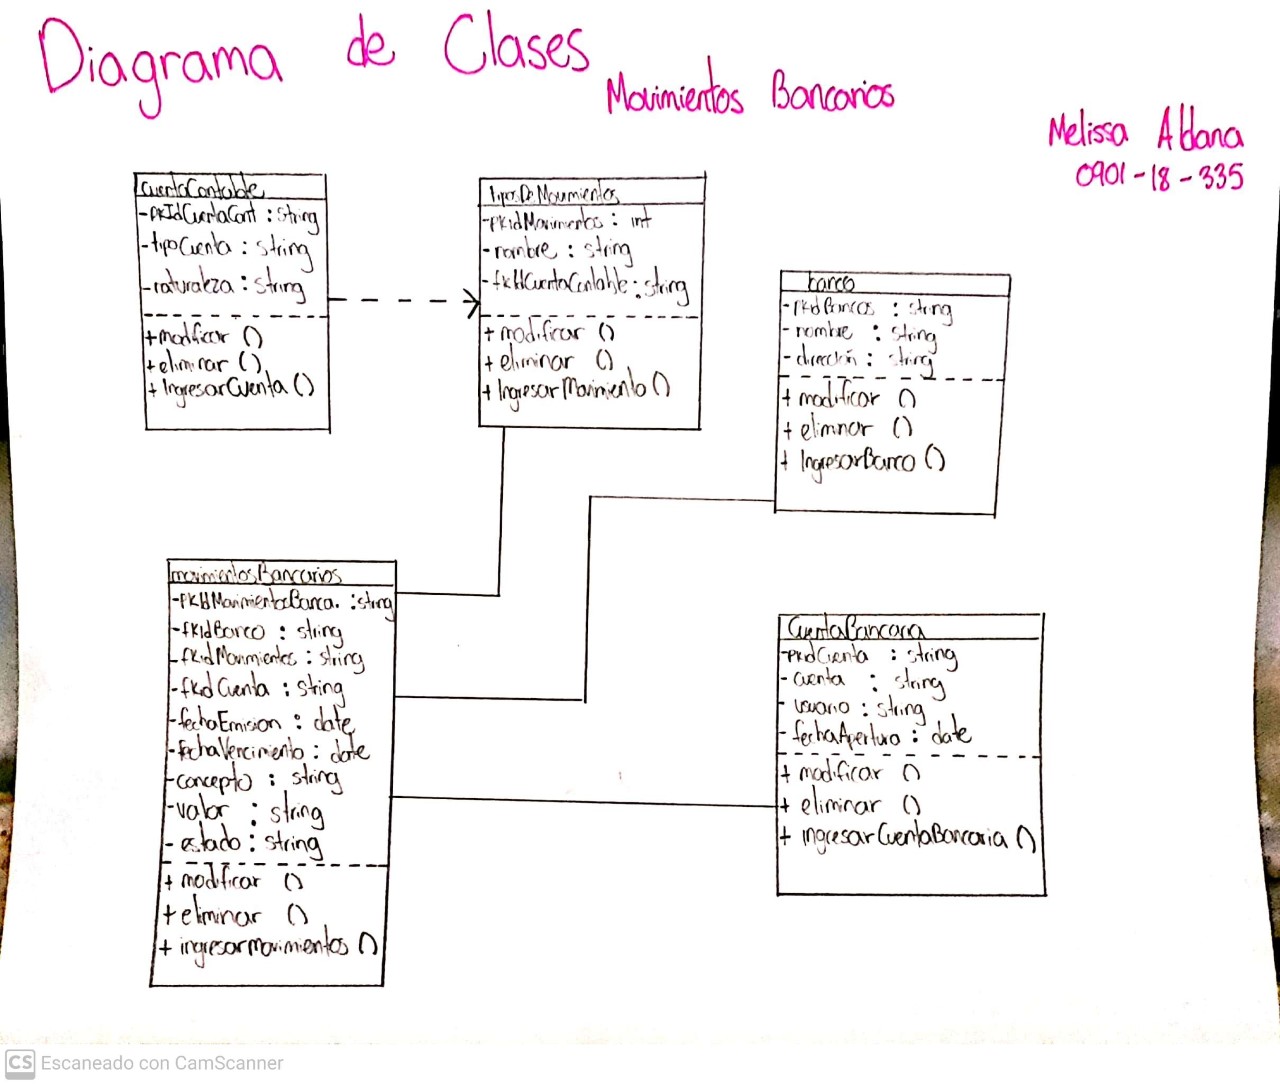 Diagrama de Clases
Movimientos Bancarios
Melissa Aldana
0901-18-335
CuentaContable
-pkIdCuentaCont : string
-tipoCuenta : string
-naturaleza : string
+modificar ()
+eliminar ()
+IngresarCuenta ()
TiposDeMovimientos
-pkidMovimientos : int
-nombre : string
-fkIdCuentaContable : string
+modificar ()
+eliminar ()
+IngresarMovimiento ()
banco
-pkidBancos : string
-nombre : string
-dirección : string
+ modificar ()
+ eliminar ()
+ IngresarBanco ()
movimientosBancarios
-PKIdMovimientoBanca. : string
-fkIdBanco : string
-fkidMovimientos : string
-fkidCuenta : string
-fechaEmision : date
-fechaVencimiento : date
-concepto : string
-valor : string
- estado : string
+ modificar ()
+ eliminar ()
+ ingresarmovimientos ()
CuentaBancaria
-pkidCuenta : string
- cuenta : string
- usuario : string
- fechaApertura : date
+ modificar ()
+ eliminar ()
+ ingresarCuentaBancaria ()
CS Escaneado con CamScanner